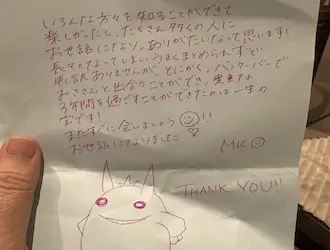 いろんな方々を知ることができて
楽しかったし、たくさん多くの人に
お世話になり、ありがたいなって思います!
長々となってしまいうまくまとめられずに
申し訳ありませんが、とにかく、バンクーバーで
みささんと出会うことができ、
3年間を過ごすことができたのは一生の
宝です!
またすぐに会いましょう!!
お世話になりました
MIKO
THANK YOU!!